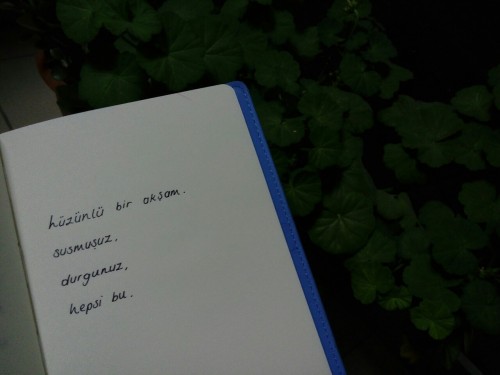 hüzünlü bir akşam.
susmuşuz,
durgunuz,
hepsi bu.